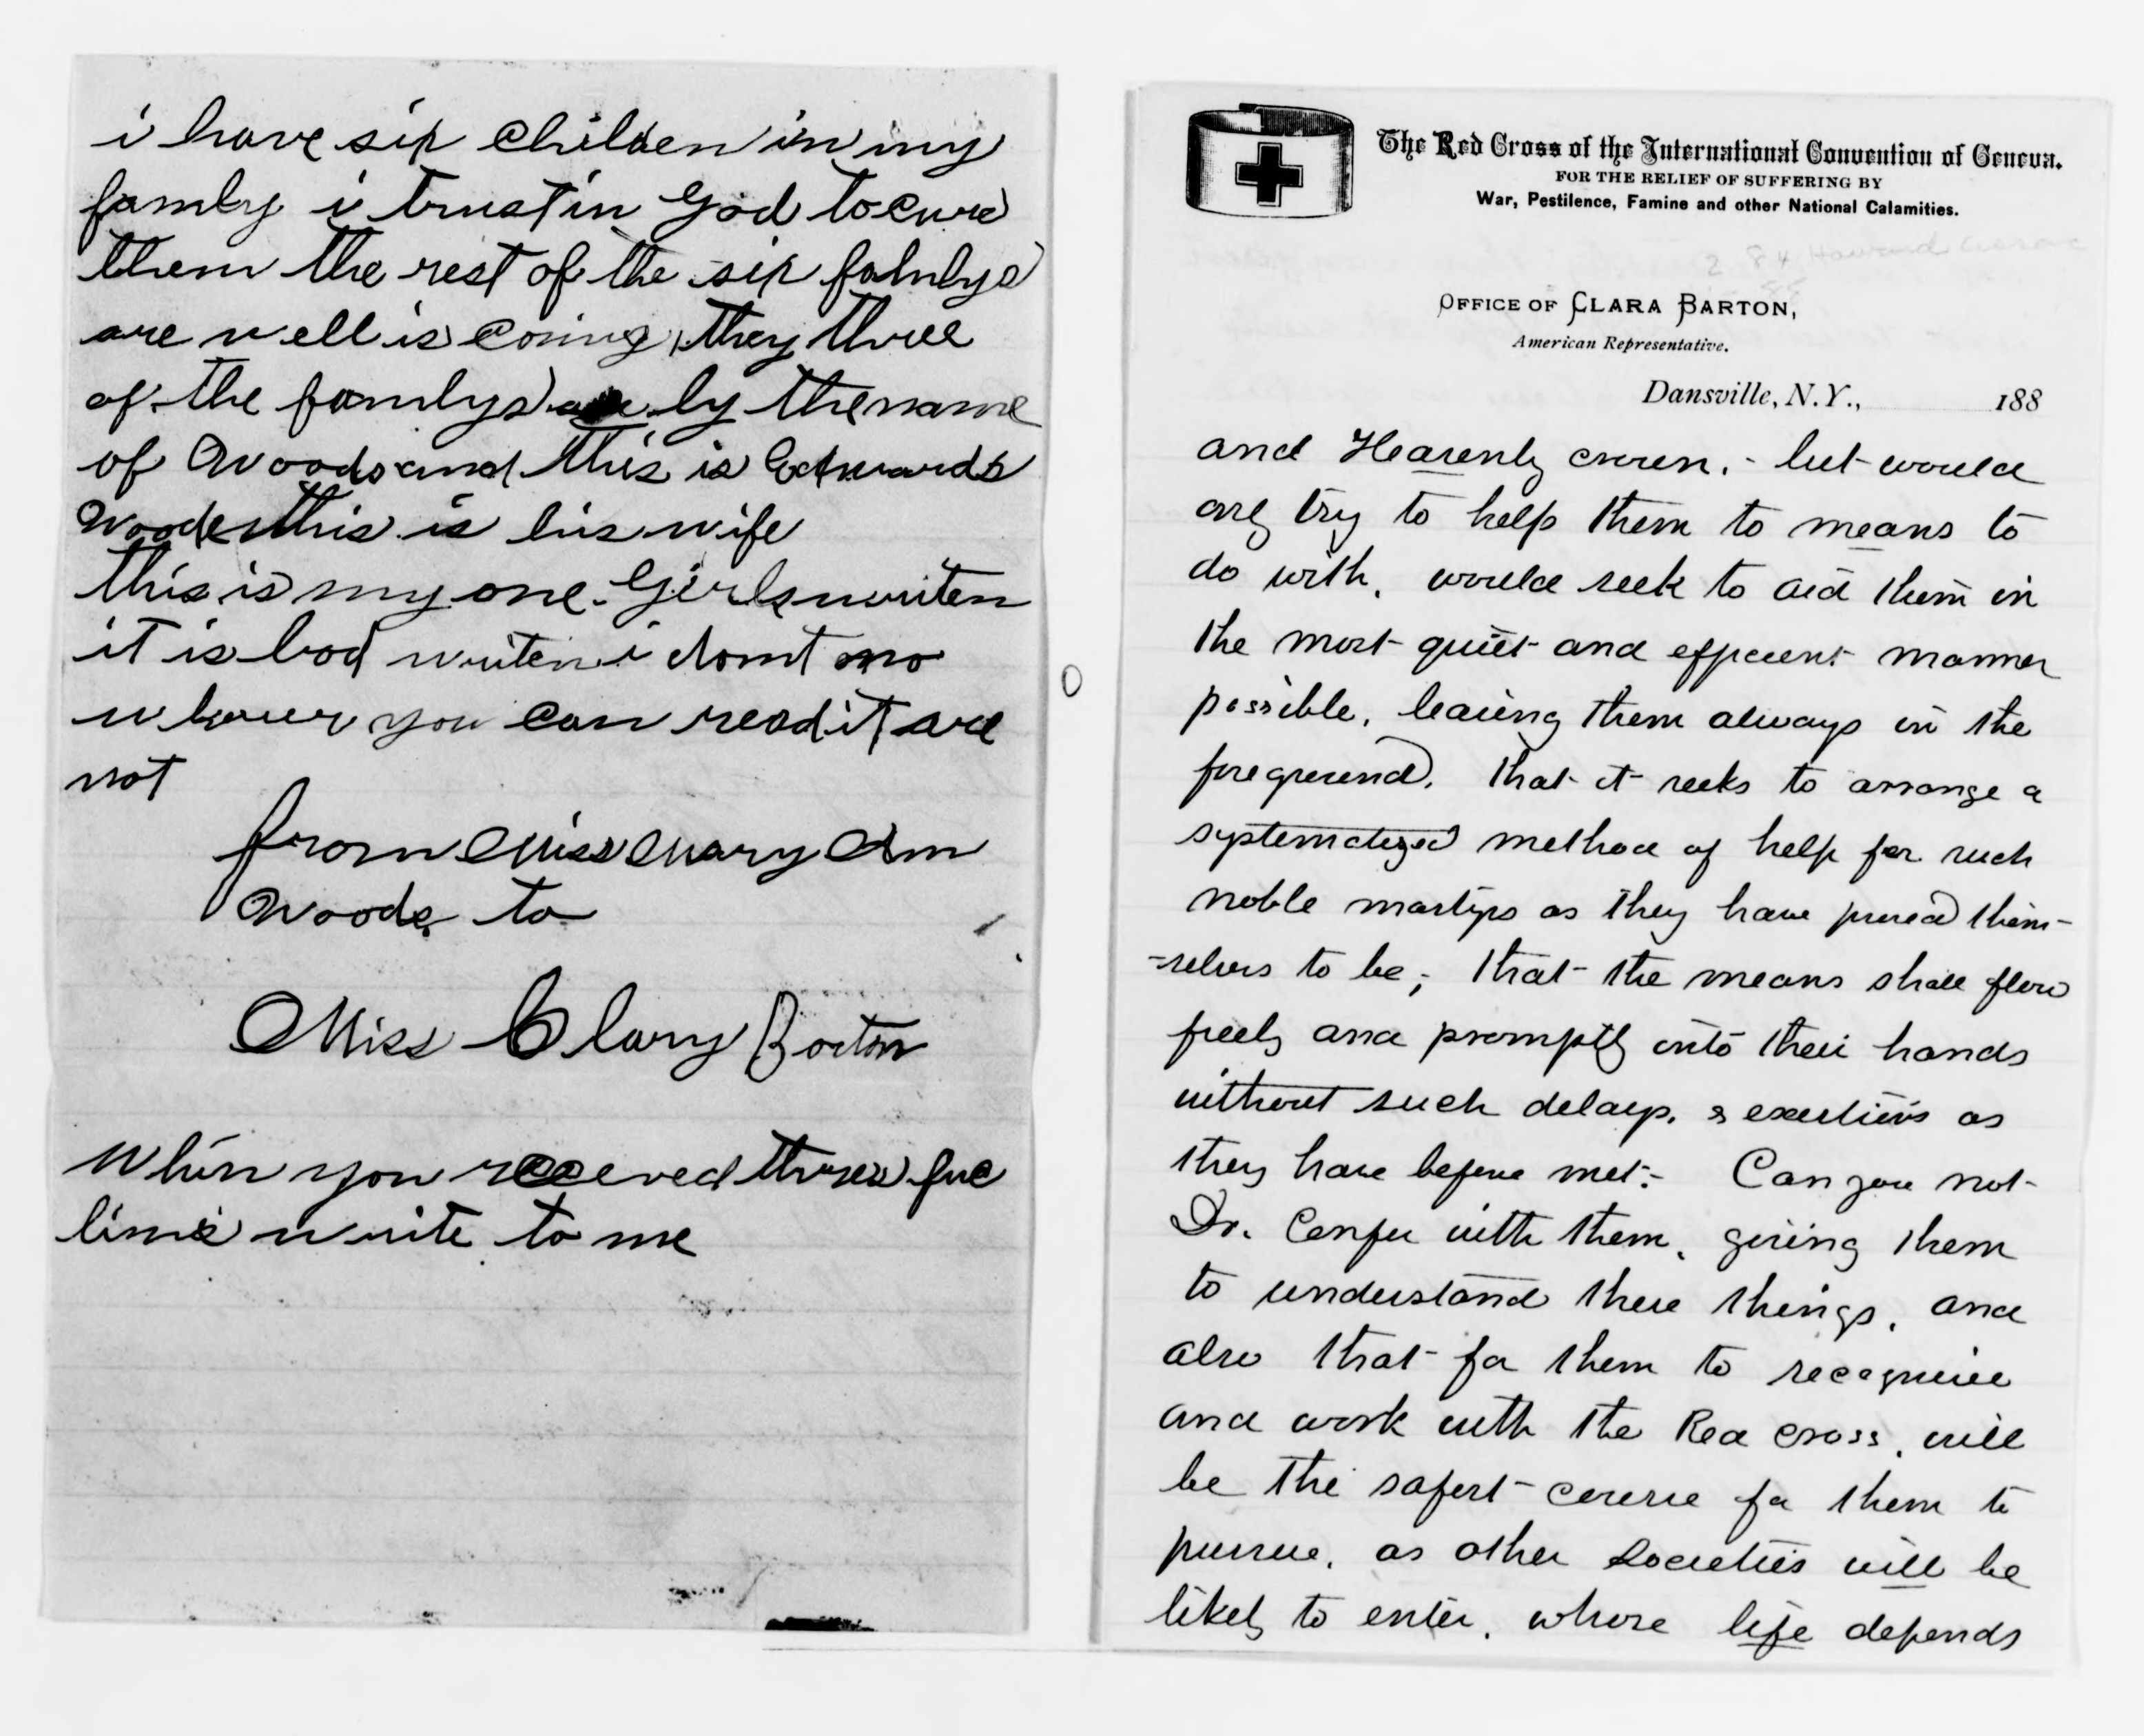 i have six Childen in my
family i trust in God to cure
them the rest of the six familys
are well is coming they three
of the familys are by the name
of Woods and this is Edwards
Woods this is his wife
this is my one Girls writen
it is bad writen i domt no
wherer you can read it are
not
from Miss Mary Am
Woods to
Miss Clary Borton
When you receeved theses fue
lines write to me
The Red Cross of the International Convention of Geneva.
FOR THE RELIEF OF SUFFERING BY
War, Pestilence, Famine and other National Calamities.
284 Howard
OFFICE OF CLARA BARTON,
American Representative.
Dansville, N.Y., 188
and Heavenly crown. - but would
only try to help them to means to
do with, would seek to aid them in
the most quiet and efficient manner
possible, leaving them always in the
foreground. That it seeks to arrange a
systematized method of help for such
noble martyrs as they have proved them-
-selves to be; that the means shall flow
freely and promptly into their hands
without such delays, & exertions as
they have before met. - Can you not
Dr. Confer with them, giving them
to understand these things, and
also that for them to recognize
and work with the Red Cross, will
be the safest course for them to
pursue, as other Societies will be
likely to enter, whose life depends